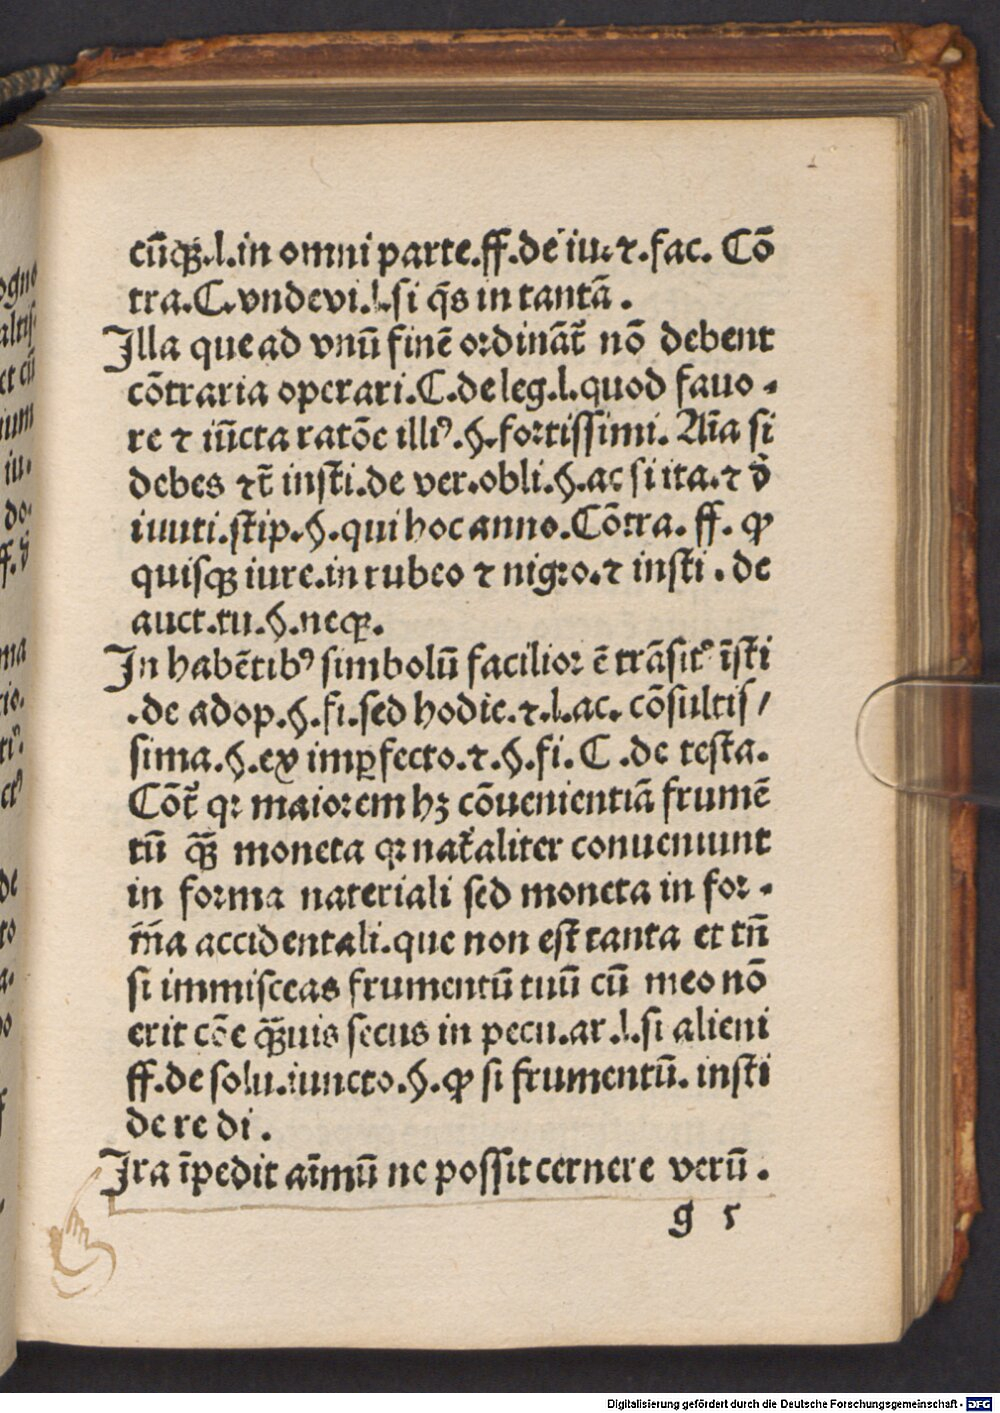 cūqȝ.l.in omni parte.ff.de iu.⁊.fac. Cō
tra.C.vndevi.l.si q̄s in tantā.
Illa que ad vnū finē ordināt᷑ nō debent
cōtraria operari.C.de leg.l.quod favo-
re ⁊ iūcta ratōe illi⁹.§.fortissimi. Aīa si
debes ⁊c̄ insti.de ver.obli.§.ac si ita.⁊ d̄
inuti.stip.§.qui hoc anno.Cōtra. ff. ꝙ
quisqȝ iure.in rubeo ⁊ nigro.⁊ insti.de
auct.tu.§.neqȝ.
In habētib⁹ simbolū facilior ē trāsit⁹ īsti
.de adop.§.fi.sed hodie.⁊.l.ac. cōsultis/
sima.§.ex imꝑfecto.⁊.§.fi. C .de testa.
Cōt᷑ qꝛ maiorem hȝ cōuenientiā frumē
tū qȝ̄ moneta qꝛ nat᷑aliter conueniunt
in forma nateriali sed moneta in for-
m̄a accidentali.que non est tanta et tn̄
si immisceas frumentū tuū cū meo nō
erit cōe qȝ̄uis secus in pecu.ar.l.si alieni
ff.de solu.iuncto.§.ꝙ si frumentū. insti
de re di.
Ira īpedit aīmū ne possit cernere verū.
g 5
Digitalisierung gefördert durch die Deutsche Forschungsgemeinschaft - DFG